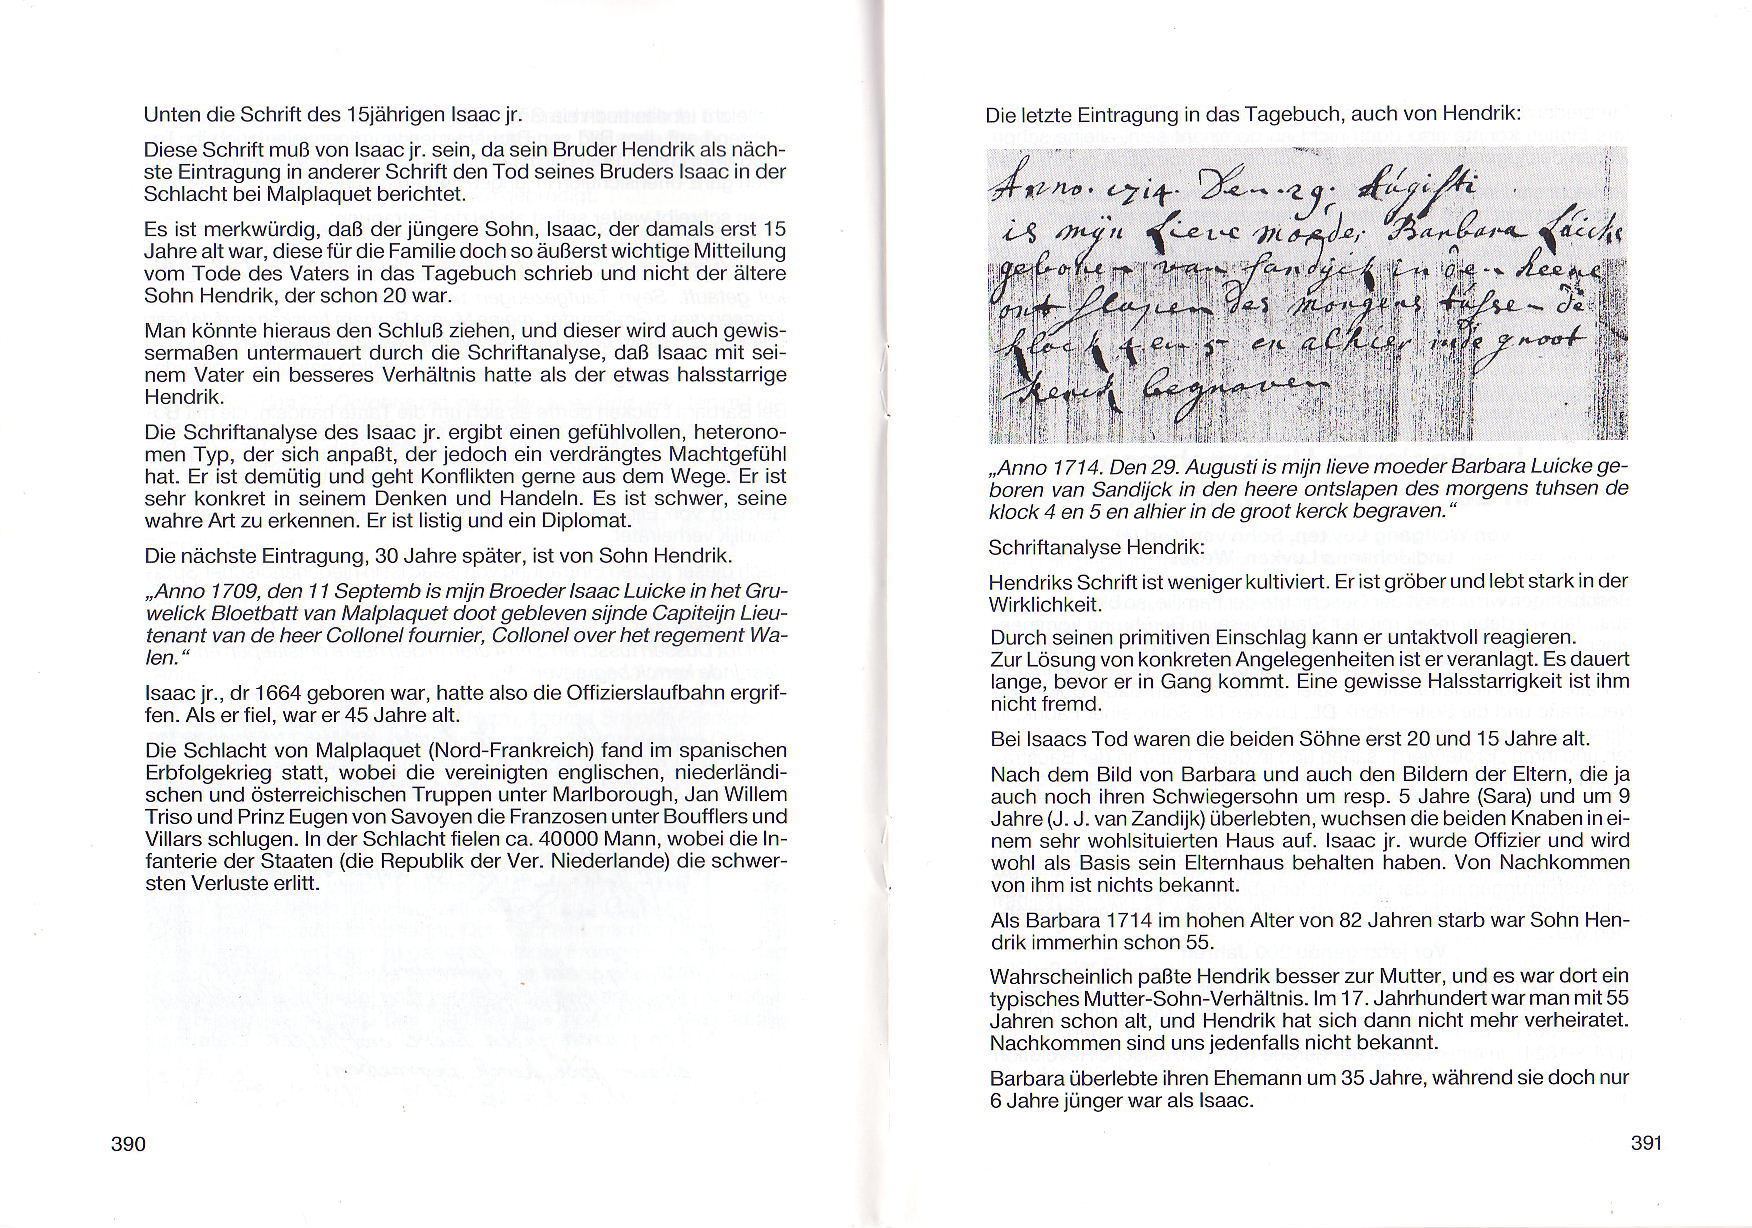 Unten die Schrift des 15jährigen Isaac jr.
Diese Schrift muß von Isaac jr. sein, da sein Bruder Hendrik als näch-
ste Eintragung in anderer Schrift den Tod seines Bruders Isaac in der
Schlacht bei Malplaquet berichtet.
Es ist merkwürdig, daß der jüngere Sohn, Isaac, der damals erst 15
Jahre alt war, diese für die Familie doch so äußerst wichtige Mitteilung
vom Tode des Vaters in das Tagebuch schrieb und nicht der ältere
Sohn Hendrik, der schon 20 war.
Man könnte hieraus den Schluß ziehen, und dieser wird auch gewis-
sermaßen untermauert durch die Schriftanalyse, daß Isaac mit sei-
nem Vater ein besseres Verhältnis hatte als der etwas halsstarrige
Hendrik.
Die Schriftanalyse des Isaac jr. ergibt einen gefühlvollen, heterono-
men Typ, der sich anpaßt, der jedoch ein verdrängtes Machtgefühl
hat. Er ist demütig und geht Konflikten gerne aus dem Wege. Er ist
sehr konkret in seinem Denken und Handeln. Es ist schwer, seine
wahre Art zu erkennen. Er ist listig und ein Diplomat.
Die nächste Eintragung, 30 Jahre später, ist von Sohn Hendrik.
„Anno 1709, den 11 Septemb is mijn Broeder Isaac Luicke in het Gru-
welick Bloetbatt van Malplaquet doot gebleven sijnde Capiteijn Lieu-
tenant van de heer Collonel fournier, Collonel over het regement Wa-
len.“
Isaac jr., dr 1664 geboren war, hatte also die Offizierslaufbahn ergrif-
fen. Als er fiel, war er 45 Jahre alt.
Die Schlacht von Malplaquet (Nord-Frankreich) fand im spanischen
Erbfolgekrieg statt, wobei die vereinigten englischen, niederländi-
schen und österreichischen Truppen unter Marlborough, Jan Willem
Triso und Prinz Eugen von Savoyen die Franzosen unter Boufflers und
Villars schlugen. In der Schlacht fielen ca. 40000 Mann, wobei die In-
fanterie der Staaten (die Republik der Ver. Niederlande) die schwer-
sten Verluste erlitt.
390
Die letzte Eintragung in das Tagebuch, auch von Hendrik:
Anno. 1714. Den. 29. Augisti
is mijn lieve moeder Barbara Luicke
geboren van sandijck in den heere
ontslapen des morgens tuhsen de
klock 4 en 5 en alhier inde groot
kerck begraven
„Anno 1714. Den 29. Augusti is mijn lieve moeder Barbara Luicke ge-
boren van Sandijck in den heere ontslapen des morgens tuhsen de
klock 4 en 5 en alhier in de groot kerck begraven.“
Schriftanalyse Hendrik:
Hendriks Schrift ist weniger kultiviert. Er ist gröber und lebt stark in der
Wirklichkeit.
Durch seinen primitiven Einschlag kann er untaktvoll reagieren.
Zur Lösung von konkreten Angelegenheiten ist er veranlagt. Es dauert
lange, bevor er in Gang kommt. Eine gewisse Halsstarrigkeit ist ihm
nicht fremd.
Bei Isaacs Tod waren die beiden Söhne erst 20 und 15 Jahre alt.
Nach dem Bild von Barbara und auch den Bildern der Eltern, die ja
auch noch ihren Schwiegersohn um resp. 5 Jahre (Sara) und um 9
Jahre (J. J. van Zandijk) überlebten, wuchsen die beiden Knaben in ei-
nem sehr wohlsituierten Haus auf. Isaac jr. wurde Offizier und wird
wohl als Basis sein Elternhaus behalten haben. Von Nachkommen
von ihm ist nichts bekannt.
Als Barbara 1714 im hohen Alter von 82 Jahren starb war Sohn Hen-
drik immerhin schon 55.
Wahrscheinlich paßte Hendrik besser zur Mutter, und es war dort ein
typisches Mutter-Sohn-Verhältnis. Im 17. Jahrhundert war man mit 55
Jahren schon alt, und Hendrik hat sich dann nicht mehr verheiratet.
Nachkommen sind uns jedenfalls nicht bekannt.
Barbara überlebte ihren Ehemann um 35 Jahre, während sie doch nur
6 Jahre jünger war als Isaac.
391